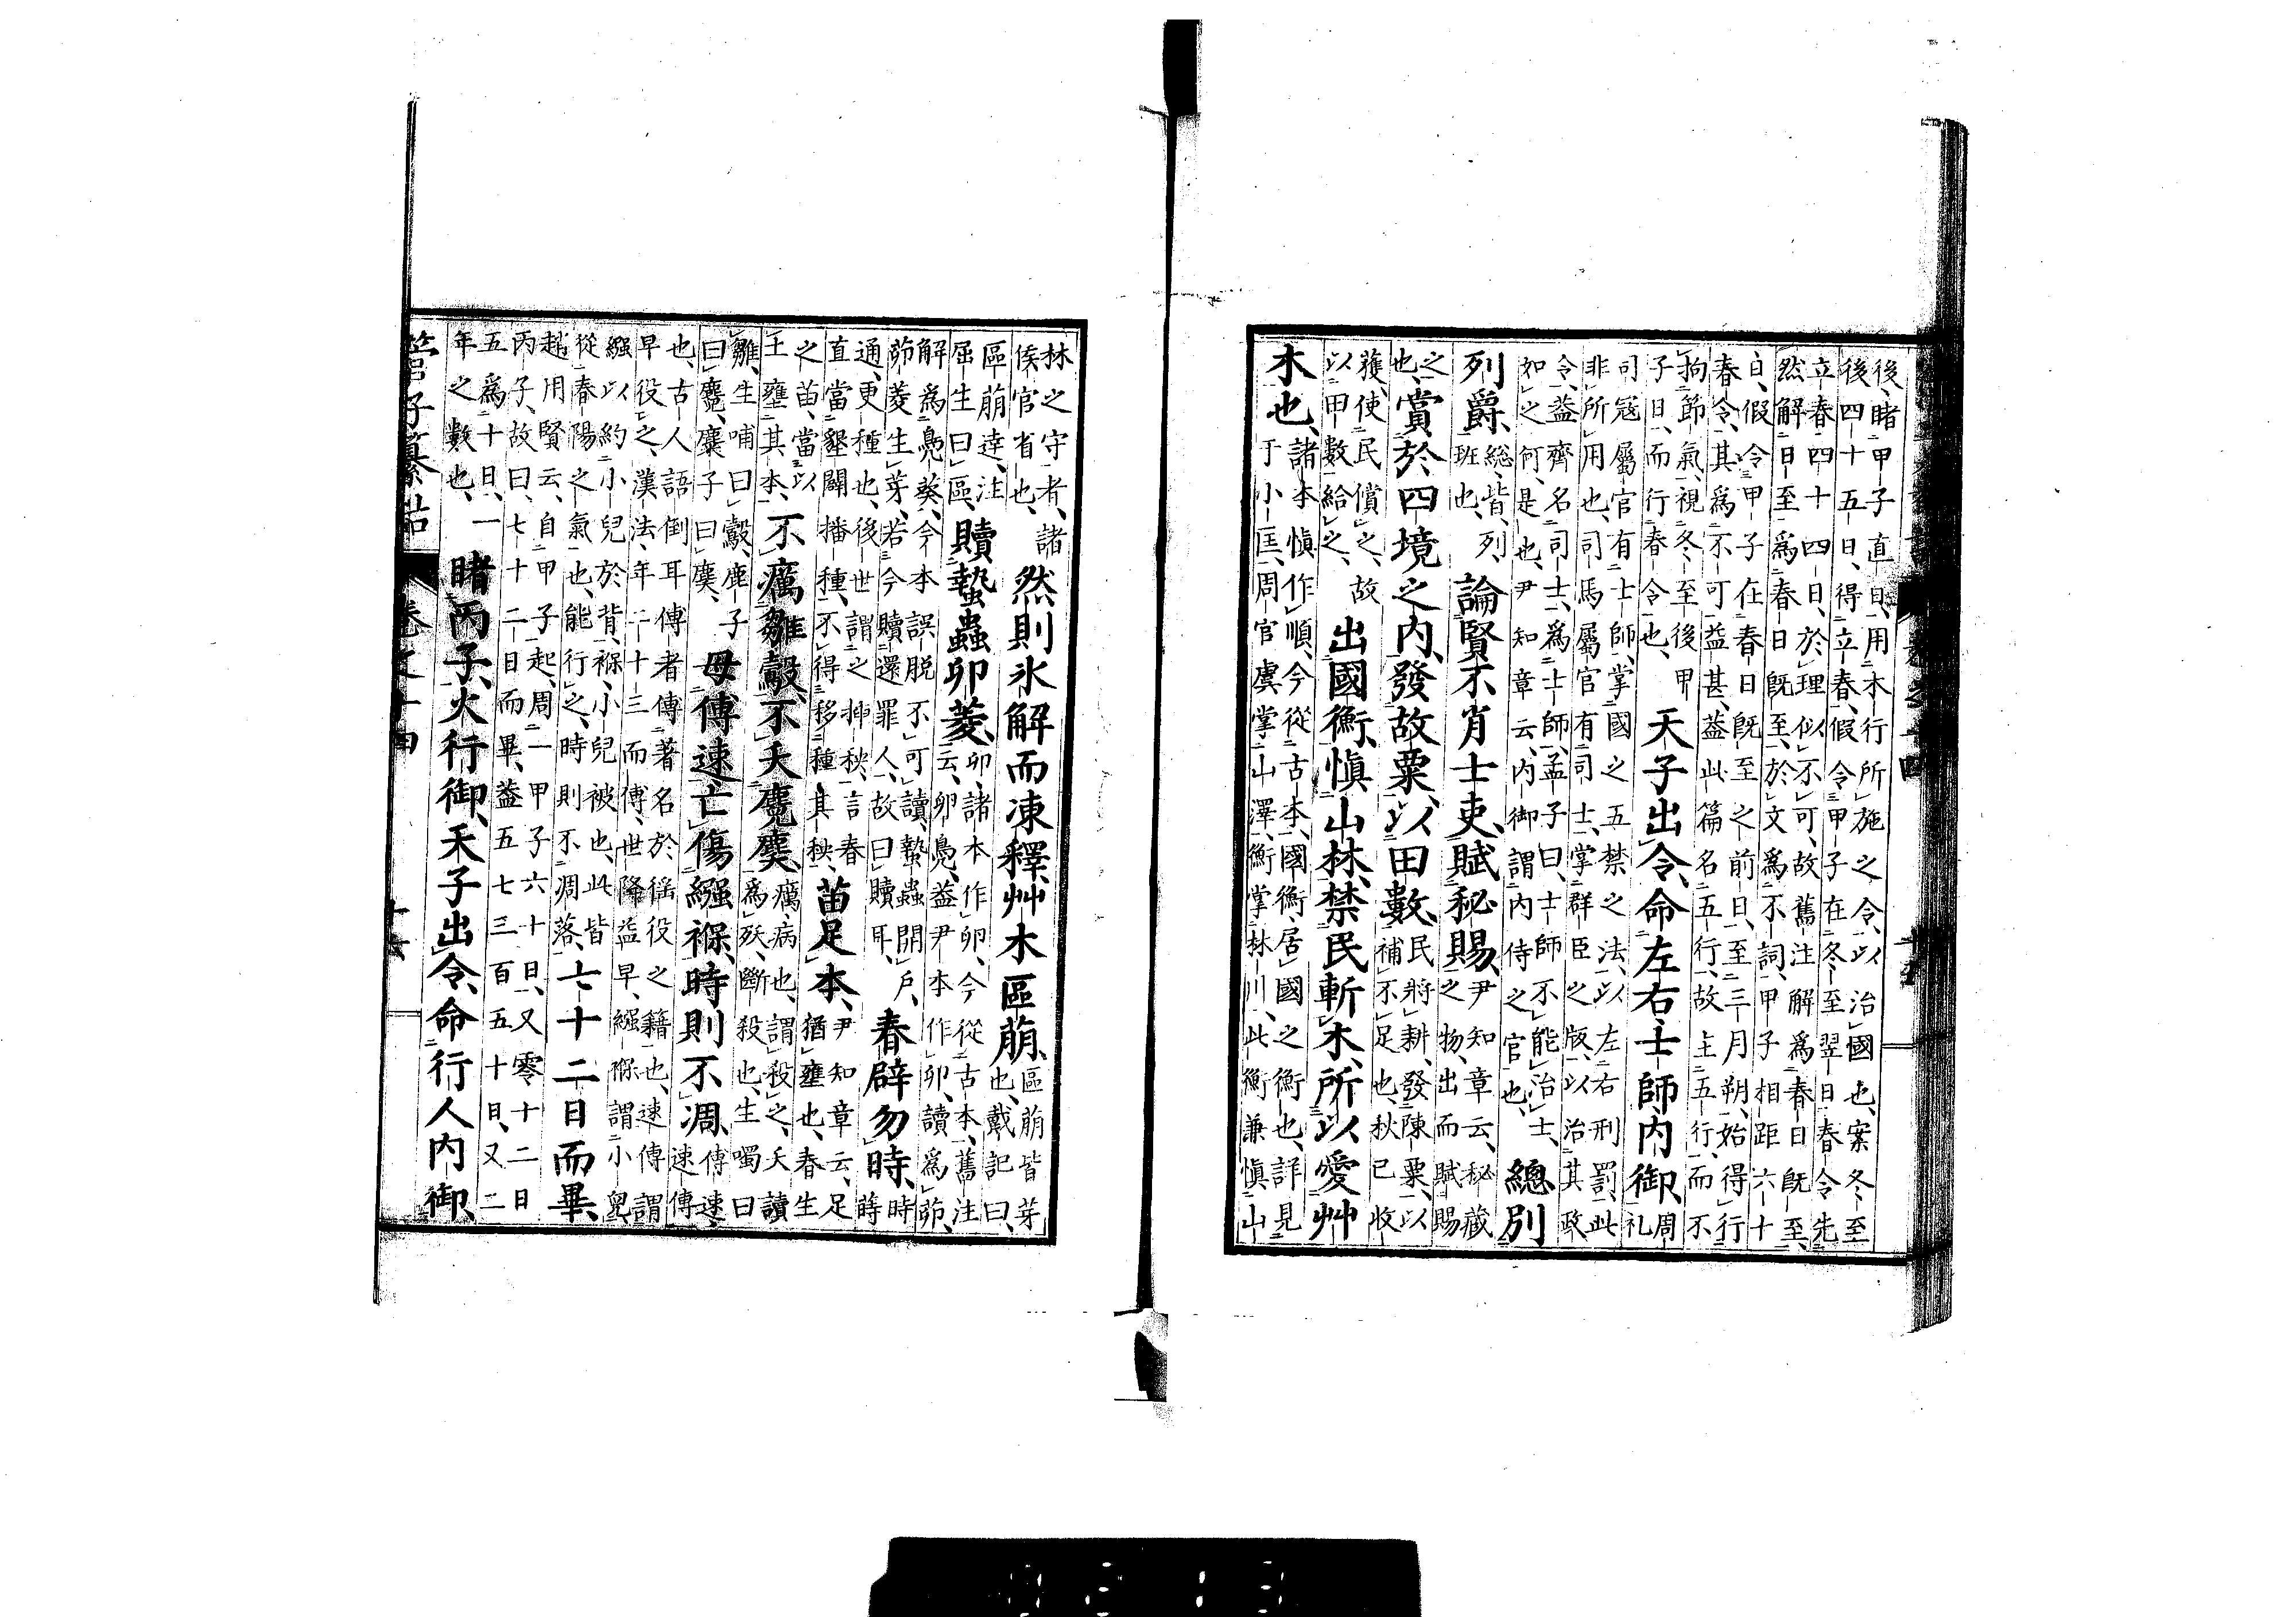 後、睹甲子直日、用木行所施之令、以治國也、案冬至
後四十五日、得立春、假令甲子在冬至翌日、春令先
立春四十四日、於理似不可、故舊注解為春日既至、
然解日至為春日既至、於文為不詞、甲子相距六十
日、假令甲子在春日既至之前日、至三月朔、始得行
春令、其為不可益甚、蓋此篇名五行、故主五行、而不
拘節氣、視冬至後甲
子日、而行春令也、
天子出令、命左右士師内御、
周
礼
司冦屬官有士師、掌國之五禁之法、以左右刑罰、此
非所用也、司馬屬官有司士、掌群臣之版、以治其政
令、益齊名司士、爲士師、孟子曰、士師不能治士、
如之何、是也、尹知章云、内御謂内侍之官也、
總別
列爵、
總、皆、列、
班也、
論賢不肖士吏、賦秘賜、
尹知章云、秘藏
之物、出而賦賜
之
也、
賞於四境之内、發故粟、以田數、
民將耕、發陳粟、以
補不足也、秋已收
穫、使民償之、故
以田數給之、
出國衡、愼山林、禁民斬木、所以愛艸
木也、
諸本愼作順、今從古本、國衡、居國之衡也、詳見
于小匡、周官虞掌山澤、衡掌林川、此衡兼愼山
林之守者、諸
侯官省也、
然則氷解而凍釋、艸木區萠、
區萠皆芽
也、戴記曰、
區萠達、注
屈生曰區、
贖蟄蟲卯菱、
卯、諸本作卵、今從古本、舊注
云、卵鳧、蓋尹本作卯、讀爲茆、
解爲鳧葵、今本誤脱不可讀、蟄蟲開戶、
茆菱生芽、若今贖還罪人、故曰贖耳、
春辟勿時、
時
蒔
通、更種也、後世謂之挿秧、言春
直當墾闢播種、不得移種其秧、
苗足本、
尹知章云、足
猶壅也、春生
之苗、當以
土壅其本、
不癘雛鷇、不夭麑麌、
癘、病也、謂殺之、夭讀
爲殀、斷殺也、生噣曰
雛、生哺曰鷇、鹿子
曰麑、麋子曰麌、
毋傅速、亡傷繦褓、時則不凋、
傅速、
速傅
也、古人語倒耳、傅者傅著名於徭役之籍也、速傅謂
早役之、漢法、年二十三而傅、世降益早、繦褓謂小兒
繦以約小兒於背、褓、小兒被也、此皆
從春陽之氣也、能行之、時則不凋落、
七十二日而畢、
越用賢云、自甲子起、周一甲子六十日、又零十二日
丙子、故曰、七十二日而畢、蓋五七三百五十日、又二
五爲十日、一
年之數也、
睹丙子、火行御、天子出令、命行人内御、
管子纂詁